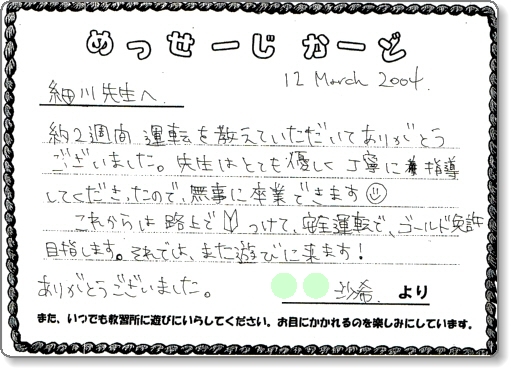 めっせーじかーど
12 March 2004.
細川先生へ
約2週間 運転を教えていただいてありがとう
ございました。先生はとても優しく丁寧に指導
してくださったので、無事に卒業できます
これからは路上で つけて、安全運転で、ゴールド免許
目指します。それでは、また遊びに来ます!
ありがとうございました。
沙希 より
また、いつでも教習所に遊びにいらしてください。お目にかかれるのを楽しみにしています。